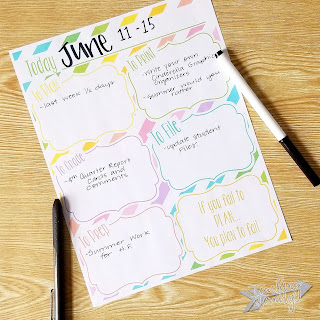 Today JUNE 11-15
To
-last week ½ days
To Print
-Write your own
Cinderella Graphic
Organizers
-Summer Would you
rather
To Grade
-4th Quarter Report
Cards and
Comments
To File
-Update Student
Files!
To Prep
-Summer Work
for H.F.
If you fail to
PLAN...
You plan to fail